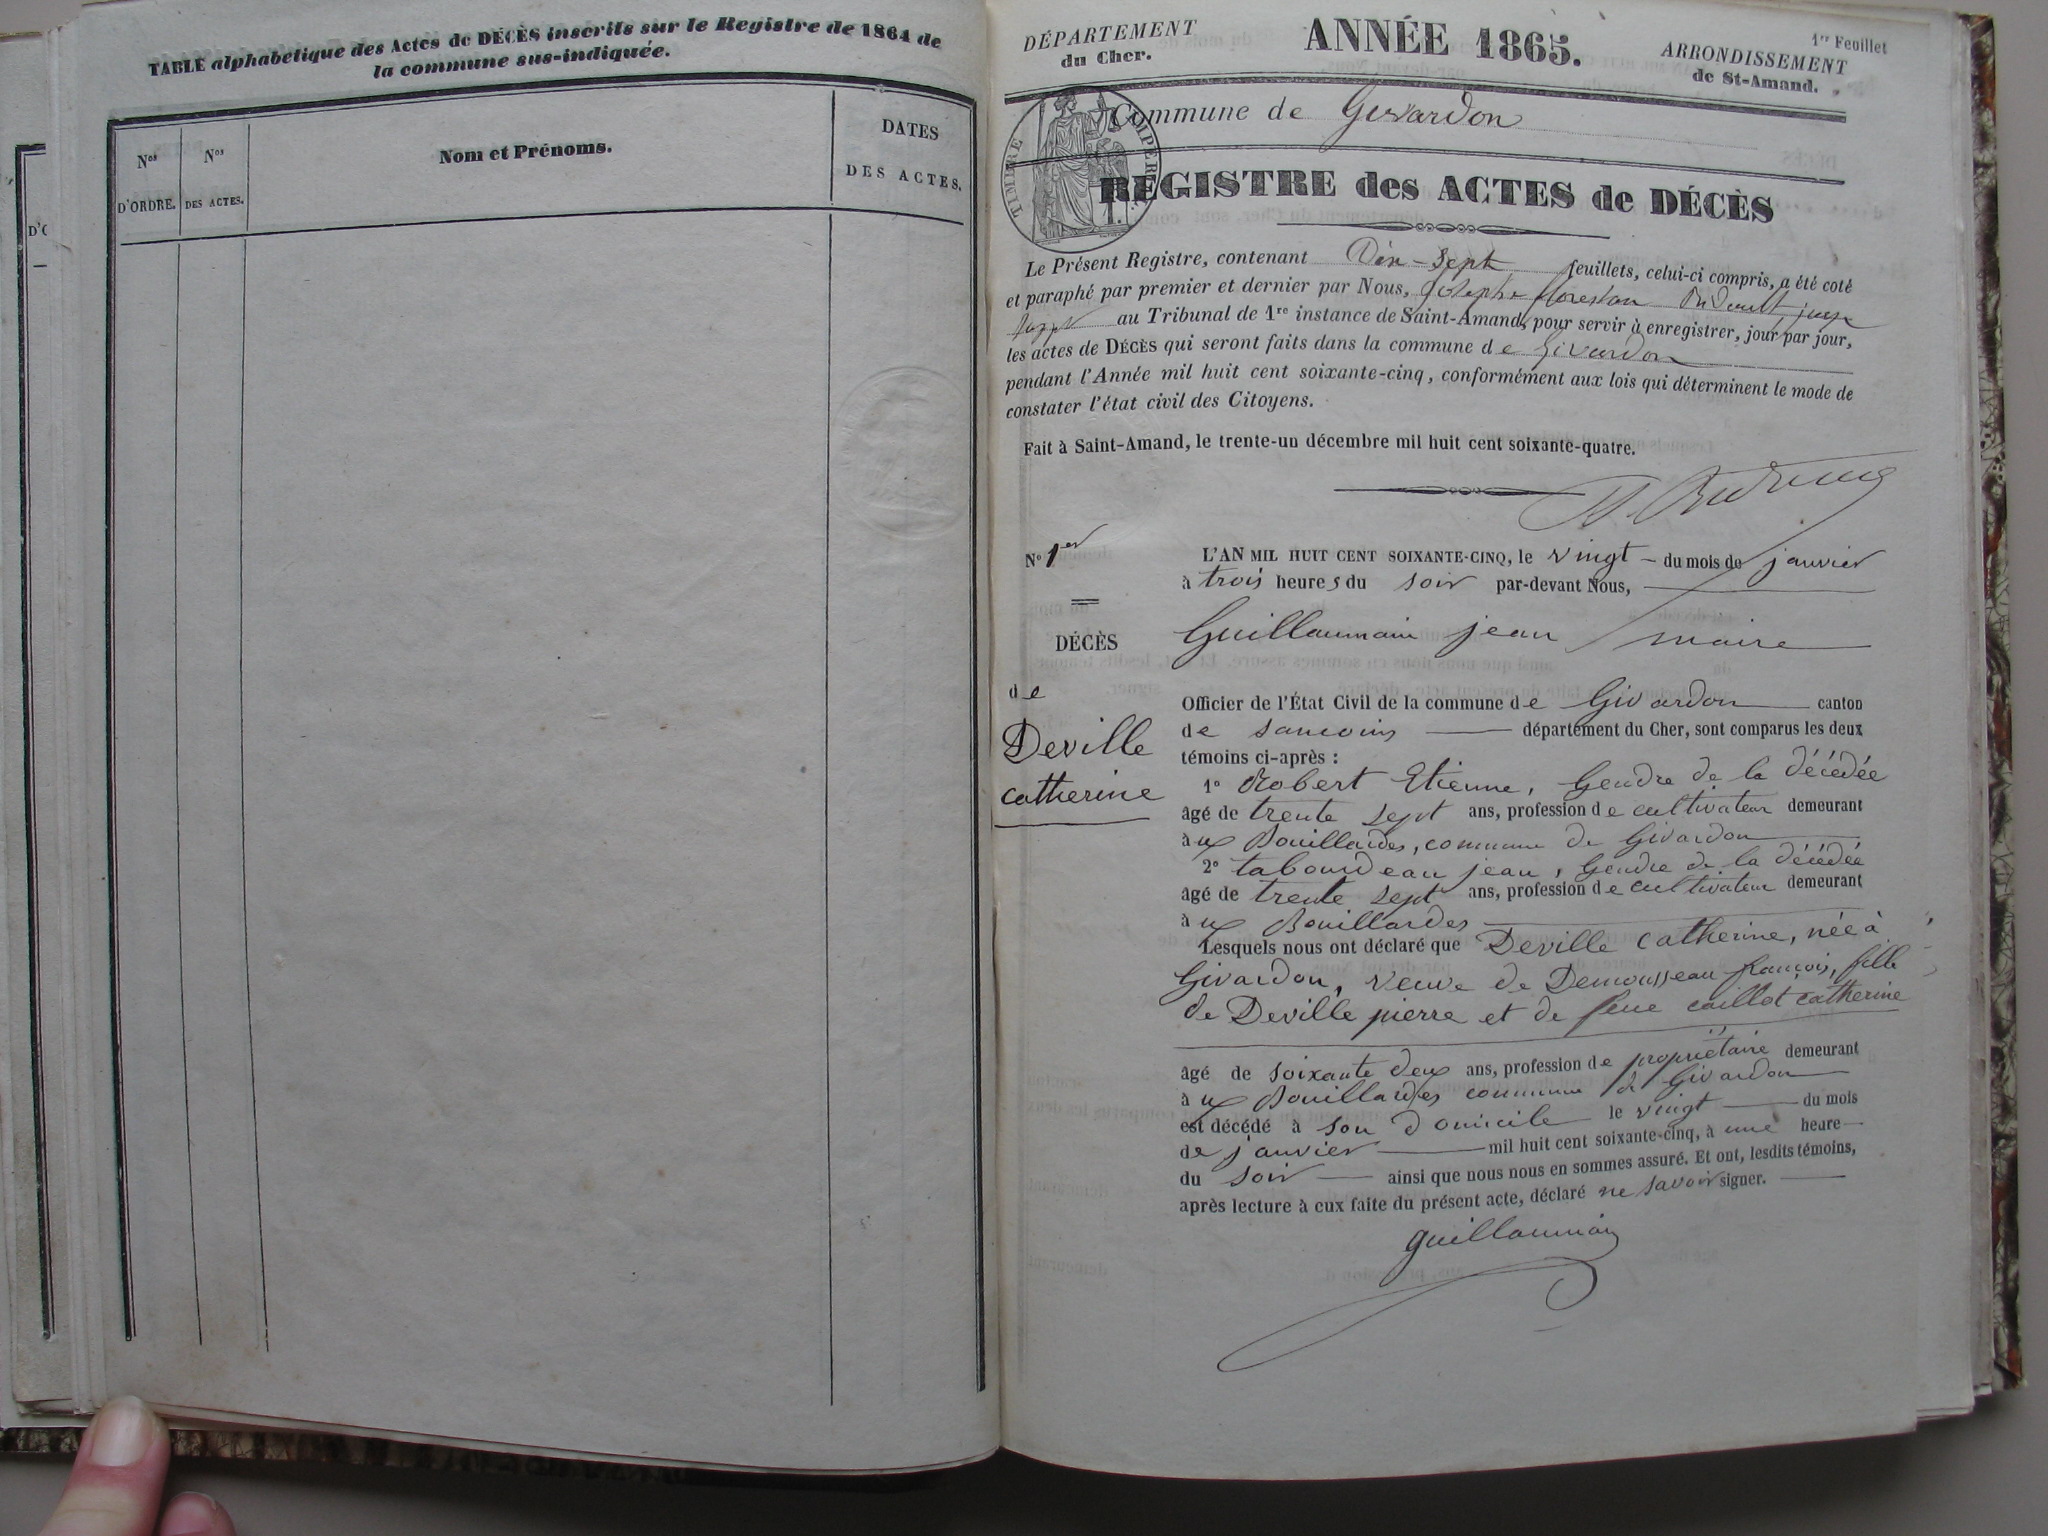 TABLE alphabétique des Actes de DÉCÈS inscrits sur le Registre de 1864 de
la commune sus-indiquée.
Nos D'ORDRE.
Nos DES ACTES.
Nom et Prénoms.
DATES DES ACTES.
D'O
DÉPARTEMENT
du Cher.
ANNÉE 1865.
1er Feuillet
ARRONDISSEMENT
de St-Amand.
TIMBRE IMPÉRIAL
Commune de Givardon
REGISTRE des ACTES de DÉCÈS
Le Présent Registre, contenant Dix-Sept feuillets, celui-ci compris, a été coté
et paraphé par premier et dernier par Nous, Joseph juge
suppt au Tribunal de 1re instance de Saint-Amand, pour servir à enregistrer, jour par jour,
les actes de DÉCÈS qui seront faits dans la commune de Givardon
pendant l'Année mil huit cent soixante-cinq, conformément aux lois qui déterminent le mode de
constater l'état civil des Citoyens.
Fait à Saint-Amand, le trente-un décembre mil huit cent soixante-quatre.
No 1er
DÉCÈS
de
Deville
catherine
L'AN MIL HUIT CENT SOIXANTE-CINQ, le vingt du mois de janvier
à trois heures du soir par-devant Nous,
Guillaumain jean maire
Officier de l'État Civil de la commune de Givardon canton
de sancoins département du Cher, sont comparus les deux
témoins ci-après :
1o Robert Etienne, Gendre de la décédée
âgé de trente sept ans, profession de cultivateur demeurant
à ux Bouillardes, commune de Givardon
2o tabourdeau jean, Gendre de la décédée
âgé de trente sept ans, profession de cultivateur demeurant
à ux Bouillardes
Lesquels nous ont déclaré que Deville catherine, née à
Givardon, veuve de Demousseau françois, fille
de Deville pierre et de feue caillot catherine
âgé de soixante deux ans, profession de propriétaire demeurant
à ux Bouillardes commune de Givardon
est décédé à son domicile le vingt du mois
de janvier mil huit cent soixante-cinq, à une heure
du soir ainsi que nous nous en sommes assuré. Et ont, lesdits témoins,
après lecture à eux faite du présent acte, déclaré ne savoir signer.
guillaumain